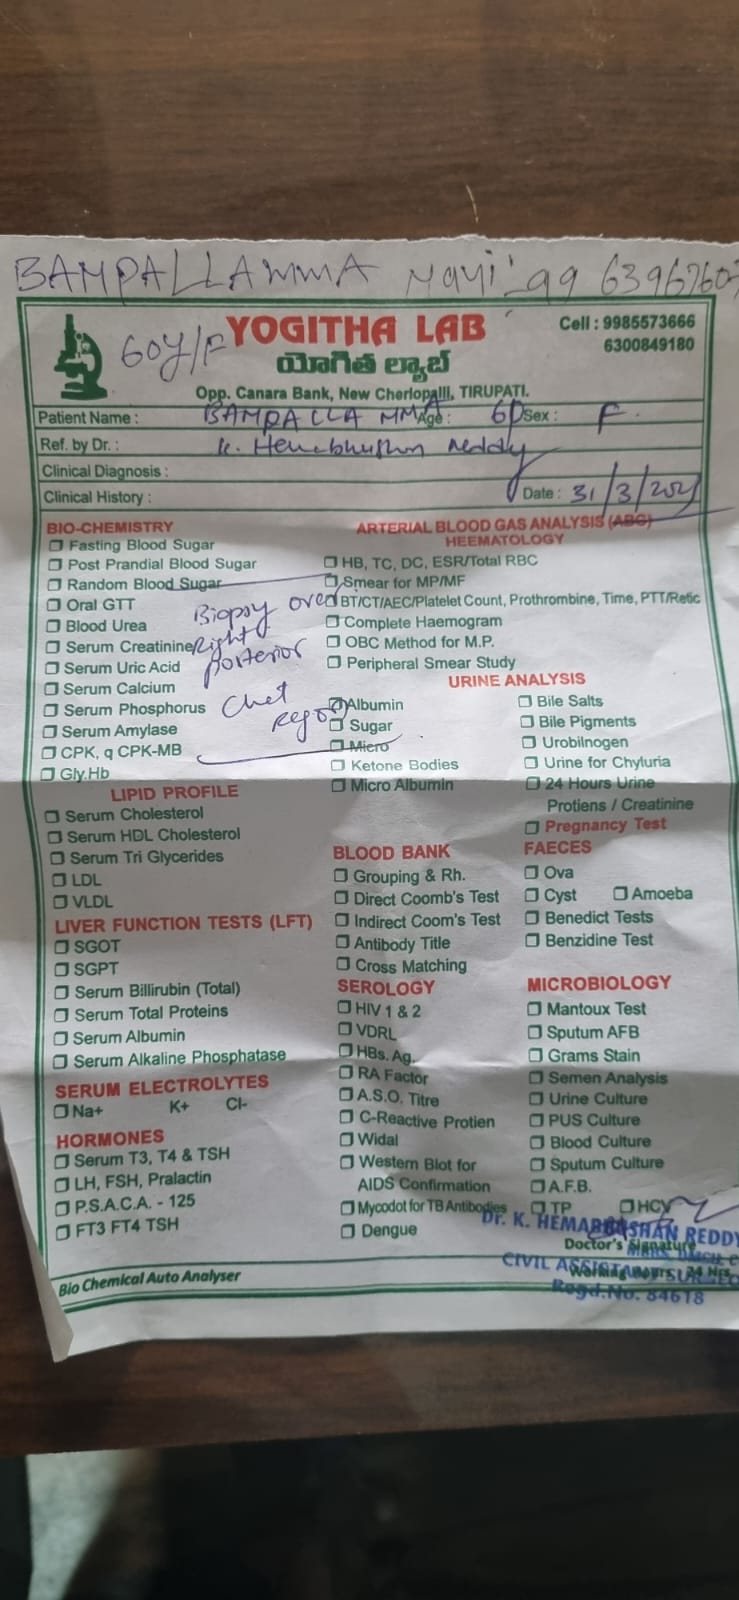 BAMPALLAMMA
60y/F
YOGITHA LAB
యోగిత ల్యాబ్
Cell : 9985573666
6300849180
Opp. Canara Bank, New Cherlopalli, TIRUPATI.
Patient Name : BAMPALLA MMA Age : 60 Sex : F.
Ref. by Dr. : K. Hemabhushan Reddy
Clinical Diagnosis :
Clinical History : Date : 31/3/
BIO-CHEMISTRY
☐ Fasting Blood Sugar
☐ Post Prandial Blood Sugar
☐ Random Blood Sugar
☐ Oral GTT
☐ Blood Urea
☐ Serum Creatinine
☐ Serum Uric Acid
☐ Serum Calcium
☐ Serum Phosphorus
☐ Serum Amylase
☐ CPK, q CPK-MB
☐ Gly.Hb
Biopsy over
Right
posterior
Chet
region
LIPID PROFILE
☐ Serum Cholesterol
☐ Serum HDL Cholesterol
☐ Serum Tri Glycerides
☐ LDL
☐ VLDL
LIVER FUNCTION TESTS (LFT)
☐ SGOT
☐ SGPT
☐ Serum Billirubin (Total)
☐ Serum Total Proteins
☐ Serum Albumin
☐ Serum Alkaline Phosphatase
SERUM ELECTROLYTES
☐ Na+ K+ Cl-
HORMONES
☐ Serum T3, T4 & TSH
☐ LH, FSH, Pralactin
☐ P.S.A.C.A. - 125
☐ FT3 FT4 TSH
ARTERIAL BLOOD GAS ANALYSIS (ABG)
HEEMATOLOGY
☐ HB, TC, DC, ESR/Total RBC
☐ Smear for MP/MF
☐ BT/CT/AEC/Platelet Count, Prothrombine, Time, PTT/Retic
☐ Complete Haemogram
☐ OBC Method for M.P.
☐ Peripheral Smear Study
URINE ANALYSIS
☐ Albumin
☐ Sugar
☐ Micro
☐ Ketone Bodies
☐ Micro Albumin
☐ Bile Salts
☐ Bile Pigments
☐ Urobilnogen
☐ Urine for Chyluria
☐ 24 Hours Urine
Protiens / Creatinine
☐ Pregnancy Test
BLOOD BANK
☐ Grouping & Rh.
☐ Direct Coomb's Test
☐ Indirect Coom's Test
☐ Antibody Title
☐ Cross Matching
SEROLOGY
☐ HIV 1 & 2
☐ VDRL
☐ HBs. Ag.
☐ RA Factor
☐ A.S.O. Titre
☐ C-Reactive Protien
☐ Widal
☐ Western Blot for
AIDS Confirmation
☐ Mycodot for TB Antibodies
☐ Dengue
FAECES
☐ Ova
☐ Cyst ☐ Amoeba
☐ Benedict Tests
☐ Benzidine Test
MICROBIOLOGY
☐ Mantoux Test
☐ Sputum AFB
☐ Grams Stain
☐ Semen Analysis
☐ Urine Culture
☐ PUS Culture
☐ Blood Culture
☐ Sputum Culture
☐ A.F.B.
☐ TP ☐ HCV
Dr. K. HEMABHUSHAN REDDY
Doctor's Signature
CIVIL ASSISTANT SURGEO
Regd.No. 84618
Bio Chemical Auto Analyser